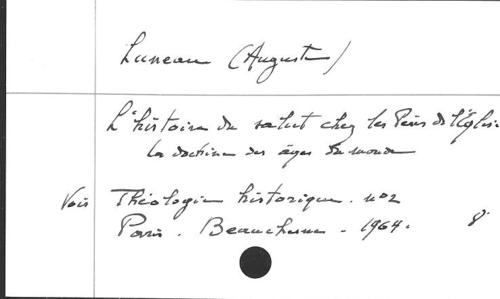 Luneau (Auguste)
L'histoire du salut chez les Pères de l'Église
la doctrine des âges du monde
Voir Théologie historique. n° 2
Paris. Beauchesne - 1964. 8°